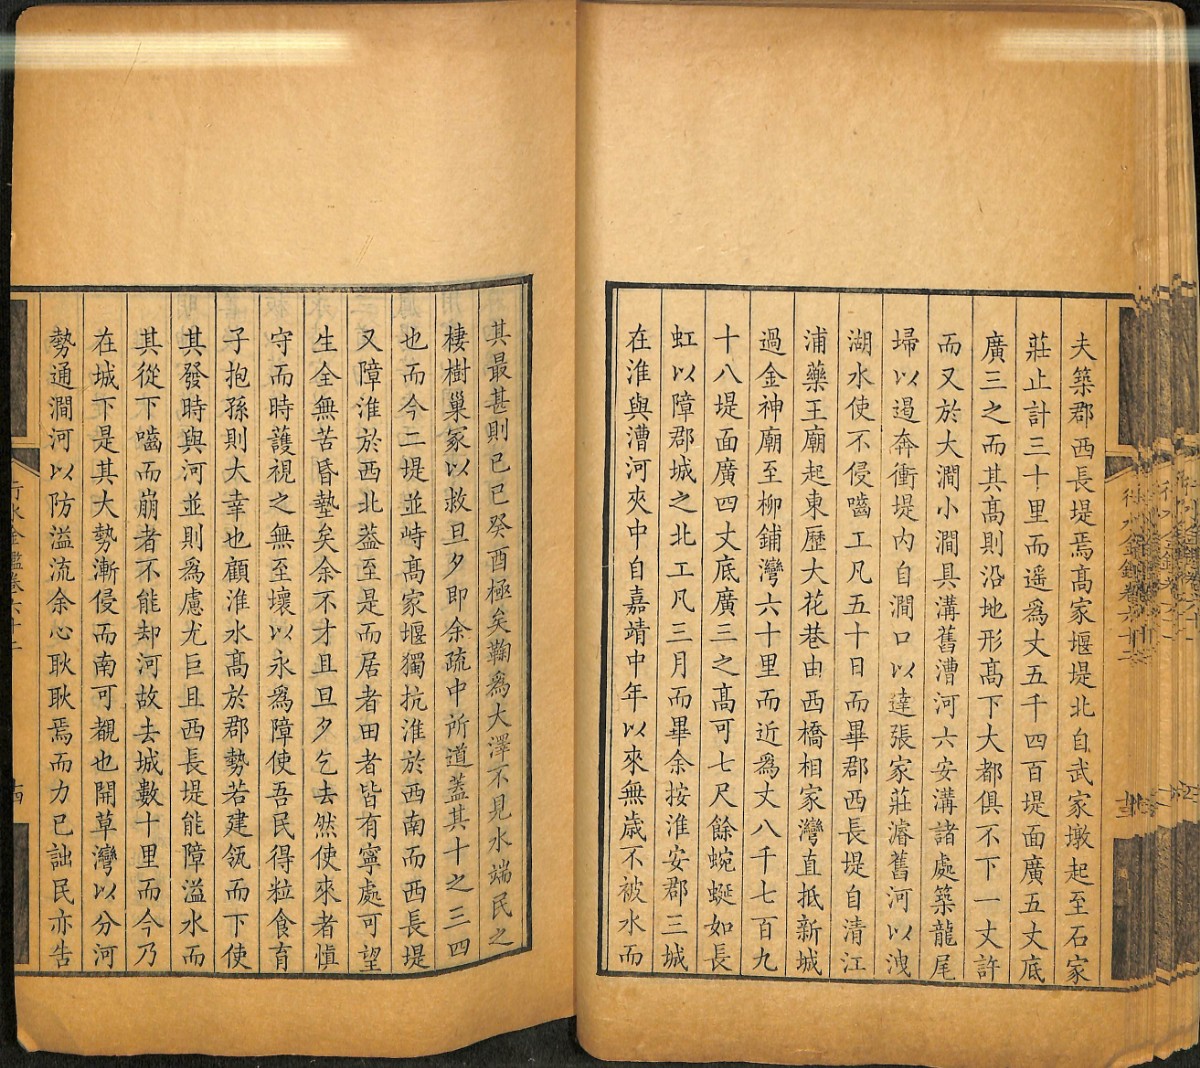 夫築郡西長堤焉髙家堰堤北自武家墩起至石家
莊止計三十里而遥爲丈五千四百堤面廣五丈底
廣三之而其髙則沿地形髙下大都俱不下一丈許
而又於大澗小澗具溝舊漕河六安溝諸處築龍尾
埽以遏奔衝堤内自澗口以達張家莊濬舊河以洩
湖水使不侵嚙工凡五十日而畢郡西長堤自清江
浦藥王廟起東歷大花巷由西橋相家灣直抵新城
過金神廟至柳鋪灣六十里而近爲丈八千七百九
十八堤面廣四丈底廣三之髙可七尺餘蜿蜒如長
虹以障郡城之北工凡三月而畢余按淮安郡三城
在淮與漕河夾中自嘉靖中年以來無歳不被水而
其最甚則已巳癸酉極矣鞠爲大澤不見水端民之
棲樹巢冢以救旦夕即余疏中所道蓋其十之三四
也而今二堤並峙髙家堰獨抗淮於西南而西長堤
又障淮於西北葢至是而居者田者皆有寧處可望
生全無苦昏墊矣余不才且旦夕乞去然使來者愼
守而時護視之無至壞以永爲障使吾民得粒食育
子抱孫則大幸也顧淮水髙於郡勢若建瓴而下使
其發時與河並則爲慮尤巨且西長堤能障溢水而
其從下嚙而崩者不能却河故去城數十里而今乃
在城下是其大勢漸侵而南可覩也開草灣以分河
勢通澗河以防溢流余心耿耿焉而力已詘民亦告
行水金鑑卷六十二
十四